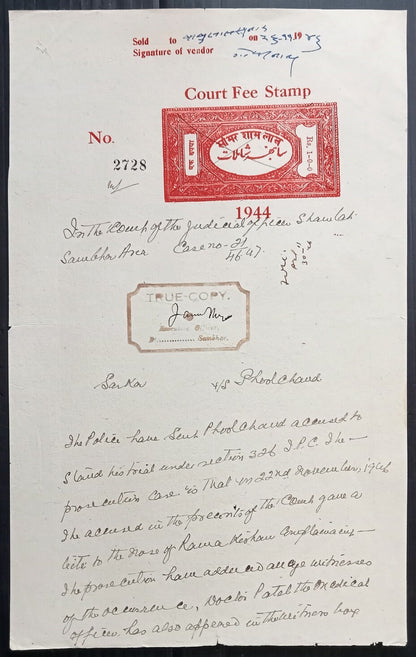 Sold to on 25-11 1946
Signature of vendor
Court Fee Stamp
No.
2728
एक रुपया
सांभर शामलात
سانبھر شاملات
Rs. 1-0-0
1944
In the Court of the Judicial officer Shamlat
Sambhar Area Case no- 21/46 47.
TRUE-COPY.
Executive Officer,
Sambhar.
Sarkar v/s Phool Chand
The Police have Sent Phool Chand accused to
Stand his trial under section 326 I.P.C. The-
prosecution case is that on 22nd November, 1946
The accused in the precincts of the Court gave a
bite to the nose of Rama Kishan Complainant-
The prosecution have adduced an eye witnesses
of the occurrence, Doctor Patel the Medical
officer has also appeared in the witness box